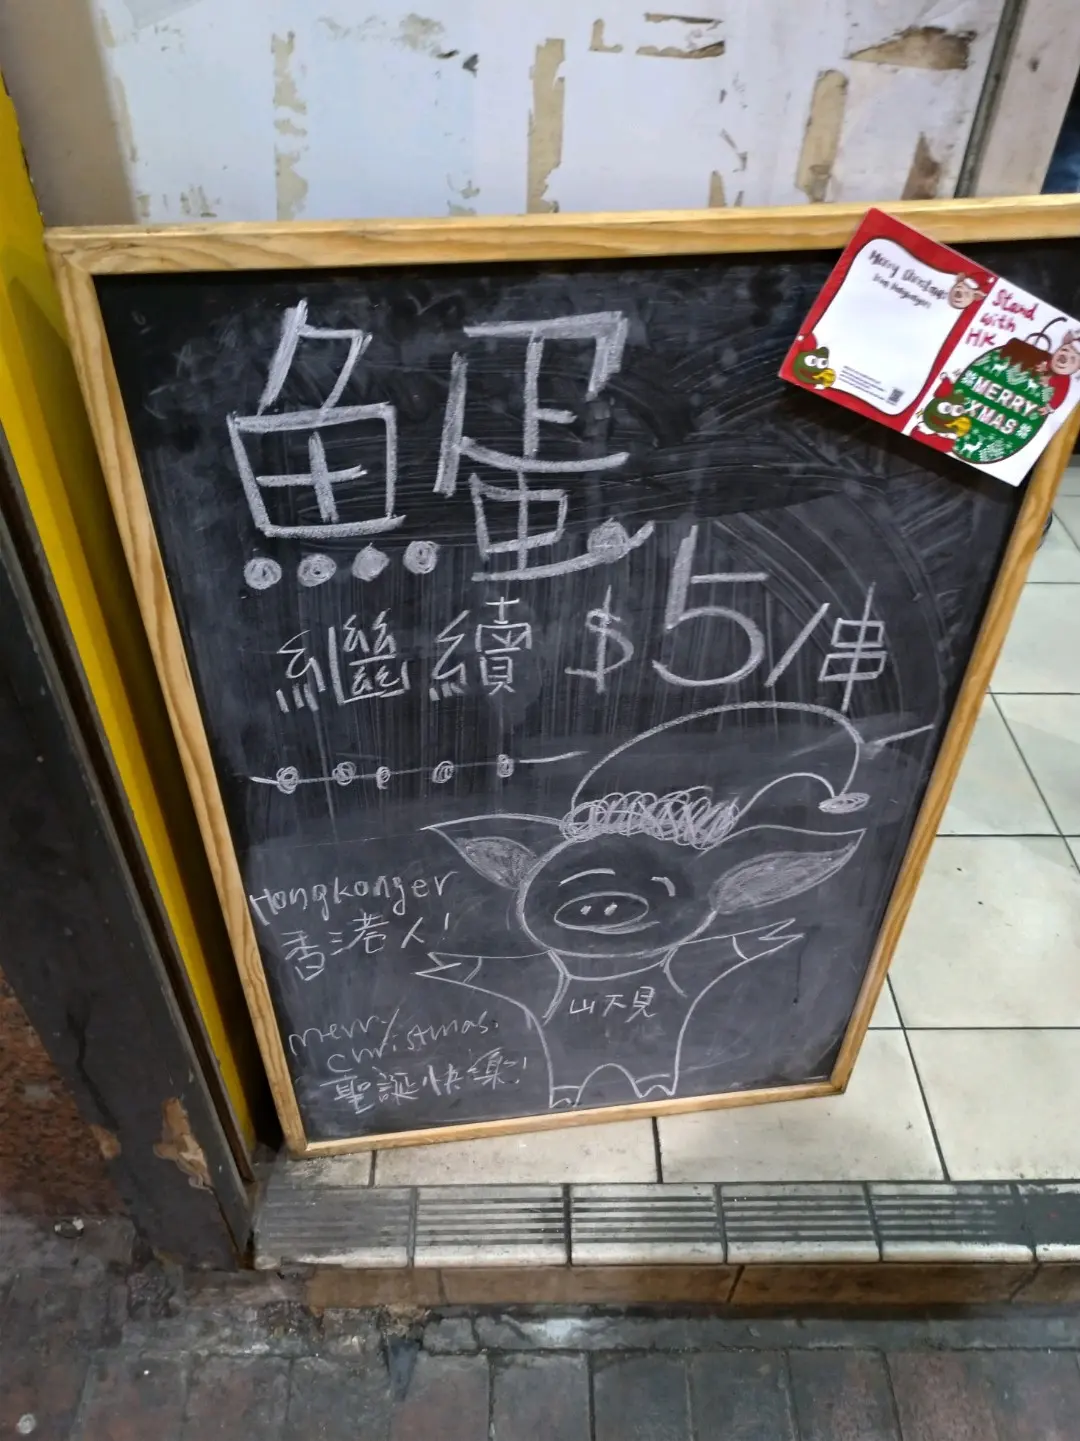 魚蛋
繼續 $5/串
Hongkonger
香港人!
山不見
merry
christmas.
聖誕快樂!
Merry Christmas
from hongkonger
Stand
with
HK
MERRY
XMAS